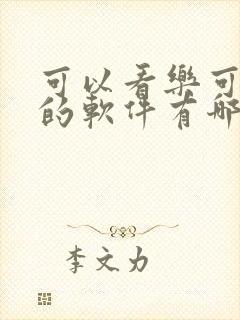 可以看樂可
的軟件有哪
李文力